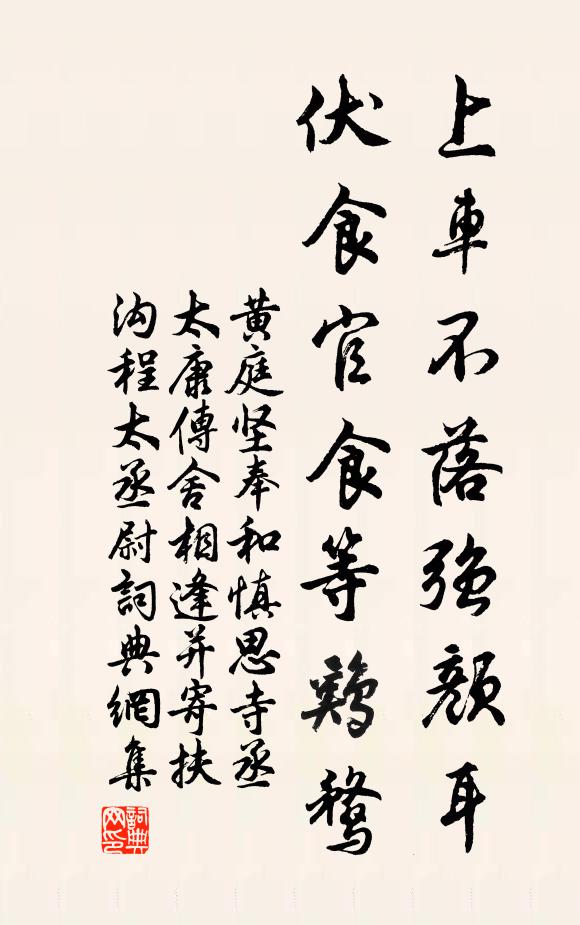 上車不落強顏耳
伏食官食等鷄鶩
黃庭坚奉和慎思寺丞
太康傳舍相逢并寄扶
沟程太丞尉詞典網集
詞典網印